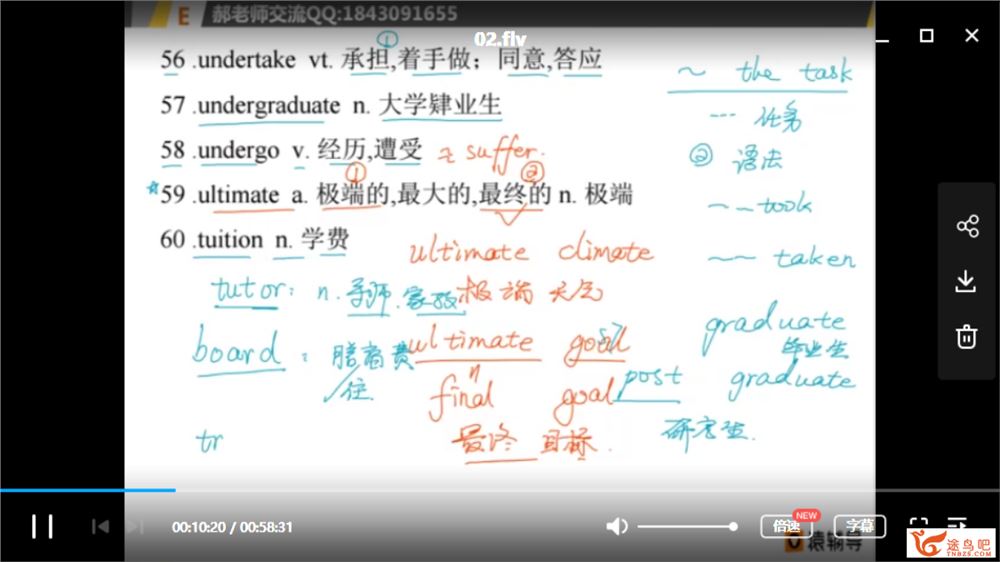 E 郝老师交流QQ:1843091655
02.flv
①
56 .undertake vt. 承担,着手做；同意,答应
~ the task
... 任务
57 .undergraduate n. 大学肄业生
58 .undergo v. 经历,遭受 ≈ suffer.
② 语法
① ②
59 .ultimate a. 极端的,最大的,最终的 n. 极端
~ ~ took
60 .tuition n. 学费
ultimate climate
~ ~ taken
tutor: n. 导师.家教
极端天气
graduate
毕业生
board : 膳宿费
住
ultimate goal
final goal
post graduate
tr
最终 目标.
研究生.
00:10:20 / 00:58:31
倍速 NEW
字幕
猿辅导
途鸟吧
TNBZS.COM